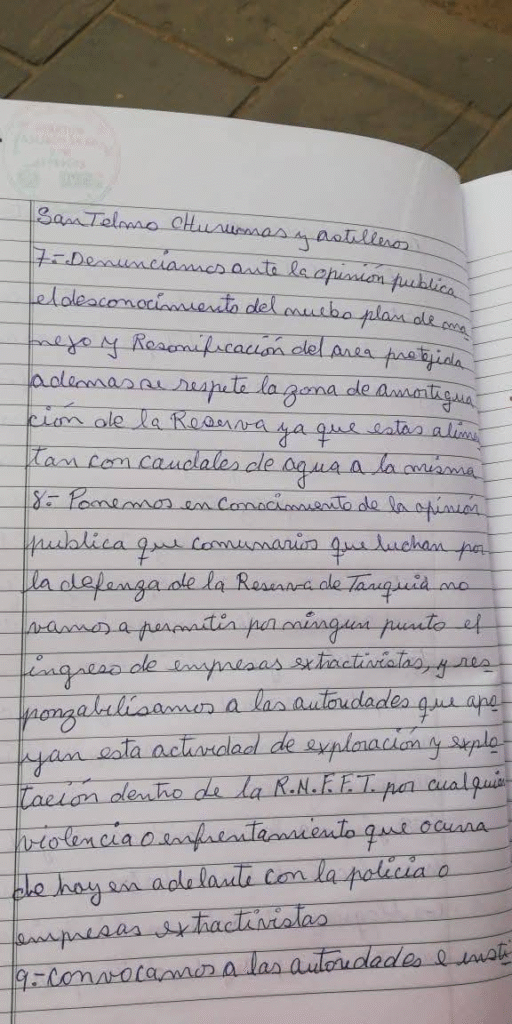 San Telmo CHurumas y astilleros
7.- Denunciamos ante la opinión publica
el desconocimiento del nuebo plan de ma
nejo y Resonificación del area protejida
ademas se respete la zona de amortigua
ción de la Reserva ya que estas alimen
tan con caudales de agua a la misma
8.- Ponemos en conocimiento de la opinión
publica que comunarios que luchan por
la defenza de la Reserva de Tariquia no
vamos a permitir por ningun punto el
ingreso de empresas extractivistas, y res
ponzabilisamos a las autoridades que apo
yan esta actividad de exploración y explo
tación dentro de la R.N.F.F.T. por cualquier
violencia o enfrentamiento que ocurra
de hoy en adelante con la policia o
empresas extractivistas
9.- Convocamos a las autoridades e insti